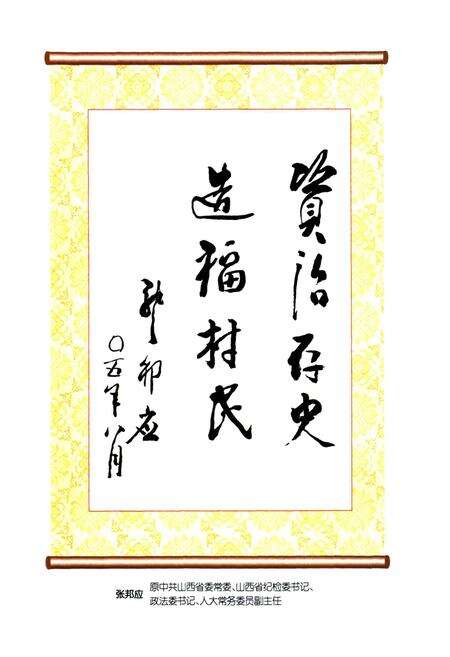 資治存史
造福村民
张邦应
〇五年八月
张邦应 原中共山西省委常委、山西省纪检委书记、
政法委书记、人大常务委员副主任